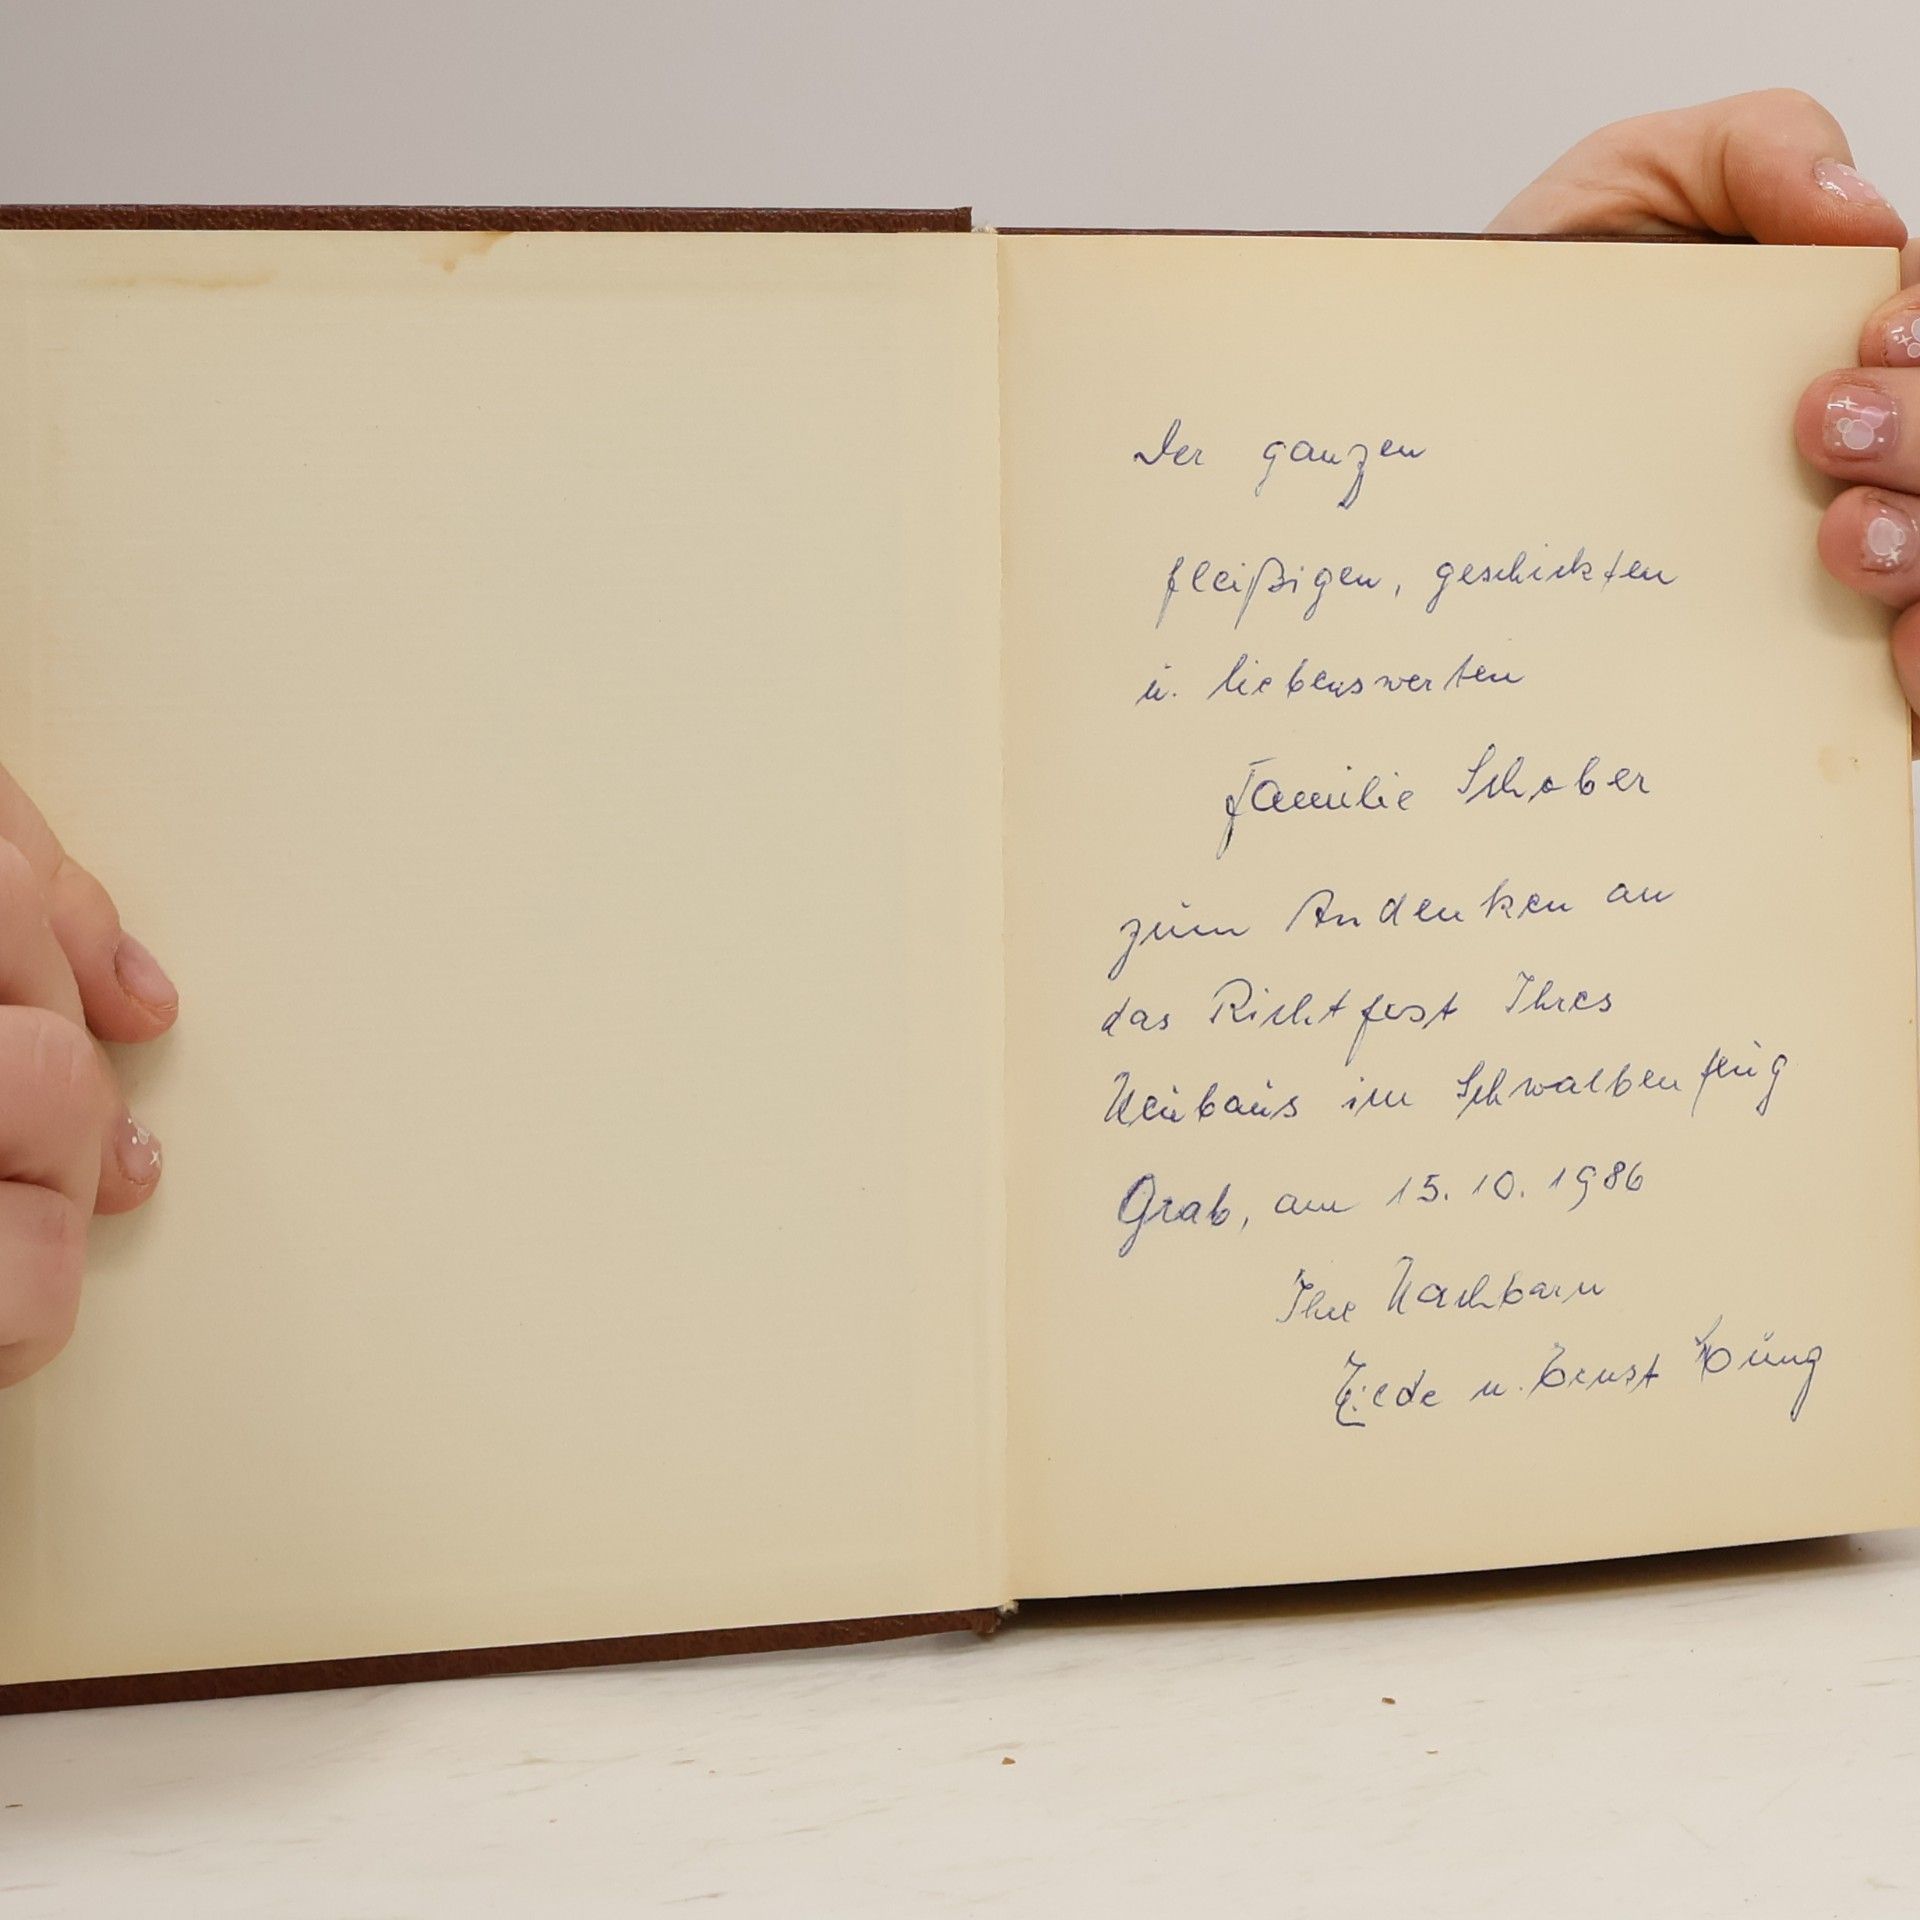 Der ganzen
fleißigen, geschickten
u. liebenswerten
Familie Schober
zum Andenken an
das Richtfest Ihres
Neubaus im Schwalbenflug
Grab, am 15.10.1986
Ihre Nachbarn
u. Ernst